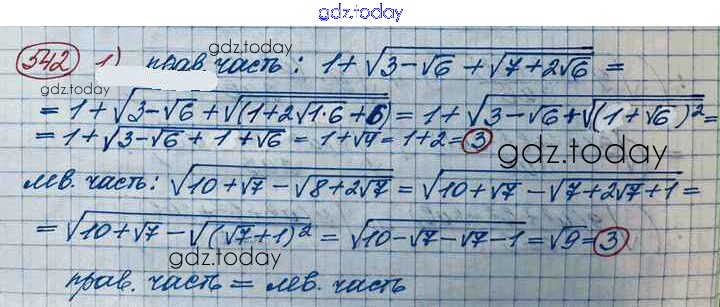 gdz.today
542 1) прав. часть: 1+√(3-√6+√(7+2√6)) =
gdz.today
gdz.today
= 1+√(3-√6+√(1+2√1·6+6)) = 1+√(3-√6+√(1+√6)²) =
= 1+√(3-√6+1+√6) = 1+√4 = 1+2 = 3
gdz.today
лев. часть: √(10+√7-√(8+2√7)) = √(10+√7-√(7+2√7+1)) =
= √(10+√7-√(√7+1)²) = √(10-√7-√7-1) = √9 = 3
gdz.today
прав. часть = лев. часть